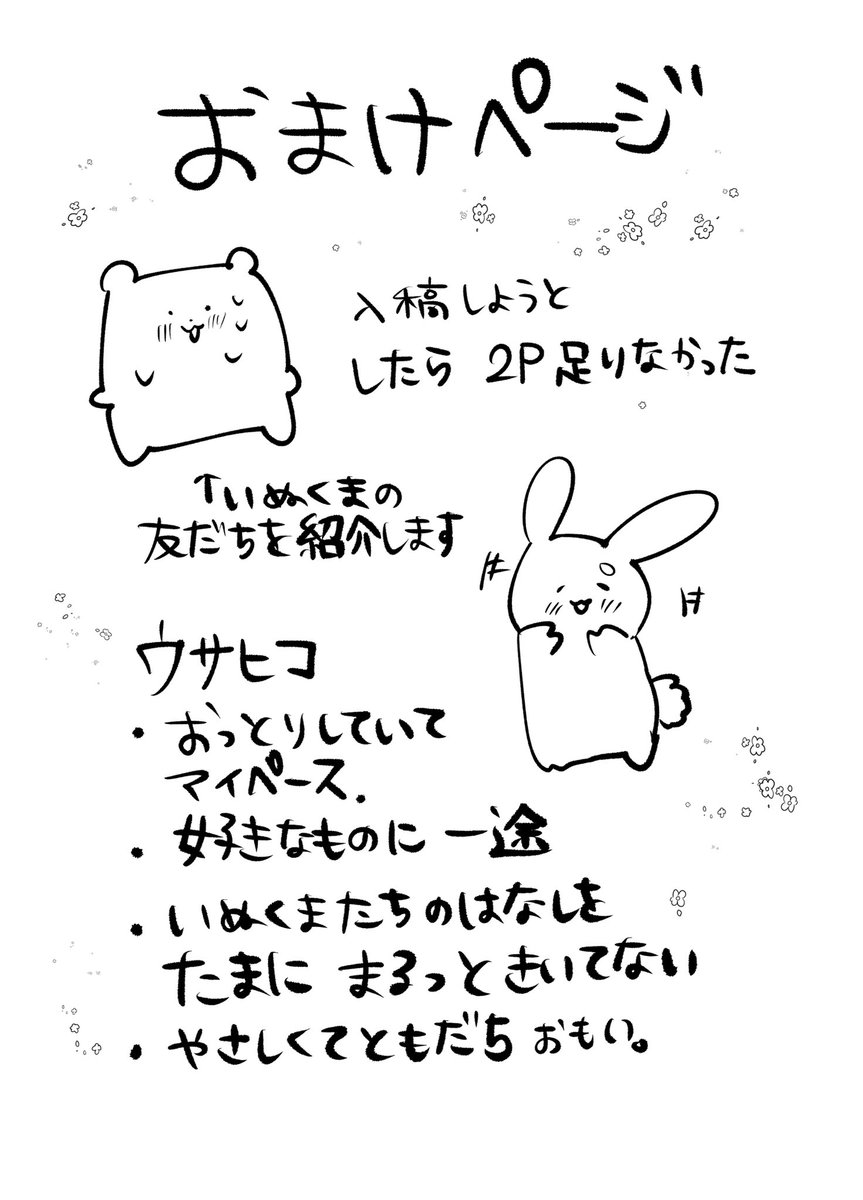 おまけページ
入稿しようと
したら 2P足りなかった
↑いぬくまの
友だちを紹介します
ウサヒコ
・おっとりしていて
マイペース.
・好きなものに一途
・いぬくまたちのはなしを
たまに まるっときいてない
・やさしくてともだちおもい。